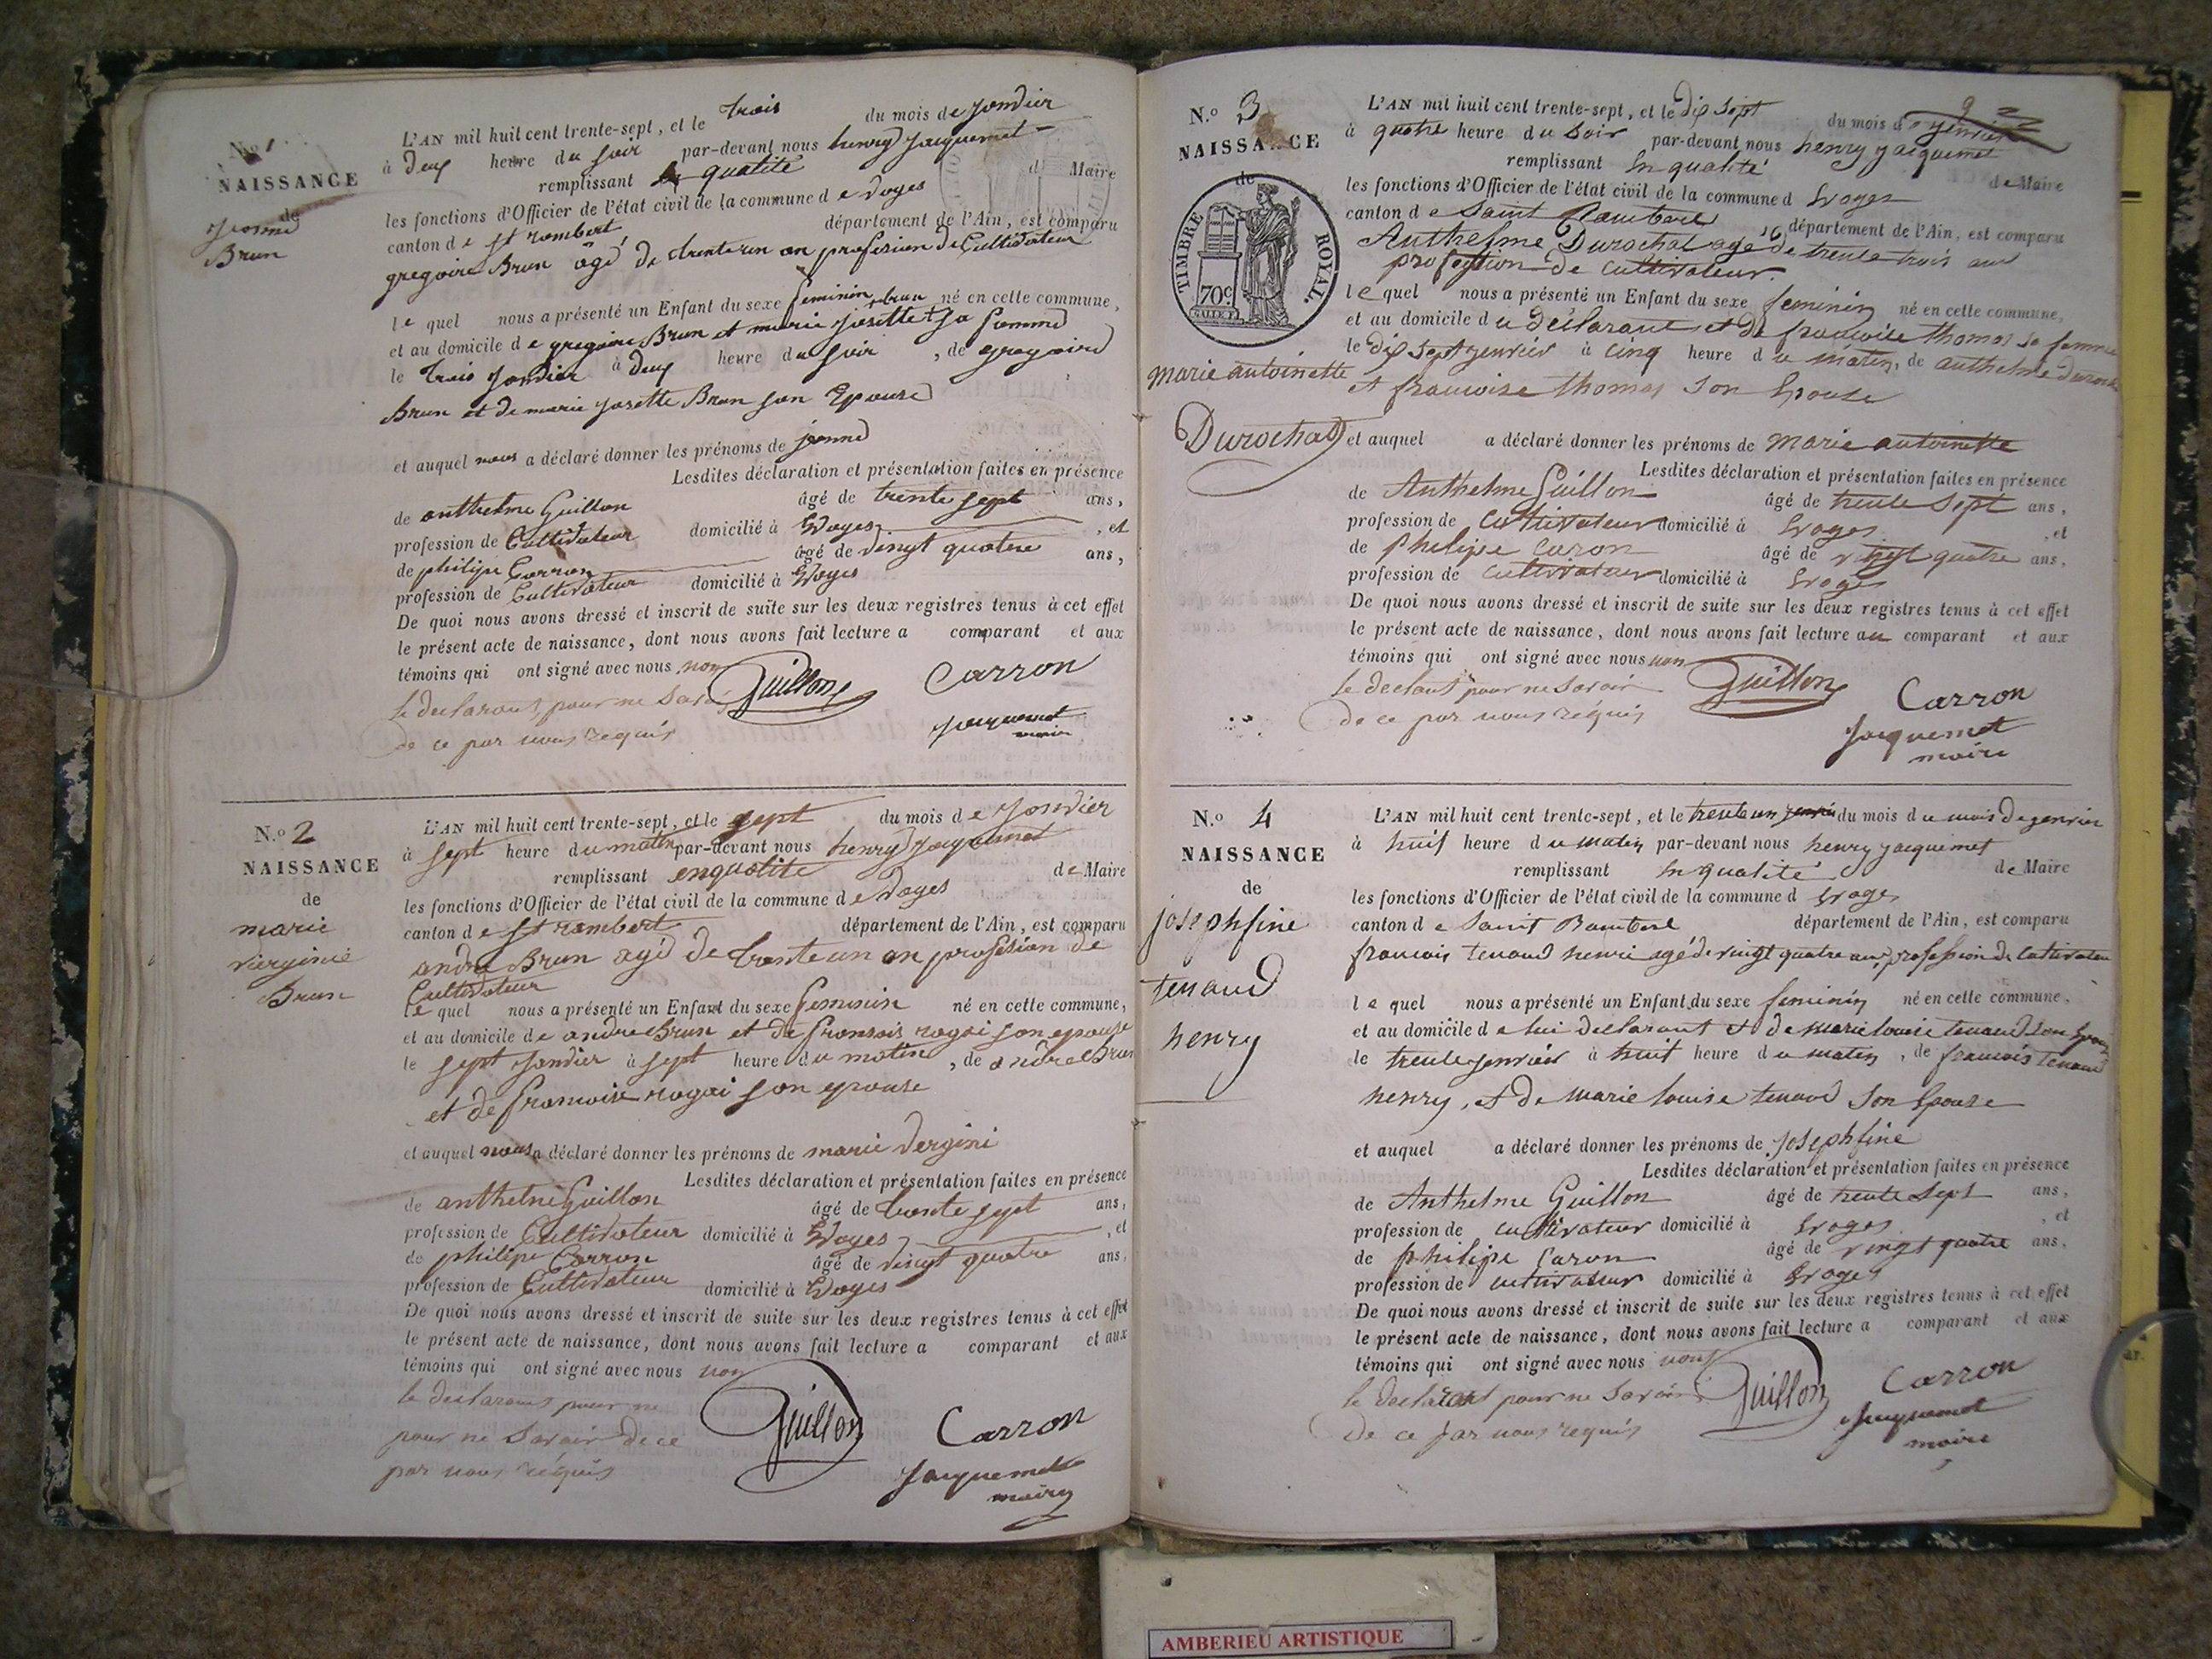 N.o 1
NAISSANCE
de
Jeanne
Brun
L'AN mil huit cent trente-sept, et le trois du mois de Janvier
à deux heure du soir par-devant nous henry Jacquemet
remplissant en qualité d Maire
les fonctions d'Officier de l'état civil de la commune d evoges
canton de st rambert département de l'Ain, est comparu
gregoire Brun agé de trente un an profesion de Cultivateur
le quel nous a présenté un Enfant du sexe feminin né en cette commune,
et au domicile de gregoire Brun et marie Josette sa femme
le trois Janvier à deux heure du soir, de gregoire
Brun et de marie Josette Brun son Epouse
et auquel nous a déclaré donner les prénoms de jeanne
Lesdites déclaration et présentation faites en présence
de anthelme Guillon âgé de trente sept ans,
profession de Cultivateur domicilié à Evoges, et
de philipe Carron âgé de vingt quatre ans,
profession de Cultivateur domicilié à Evoges
De quoi nous avons dressé et inscrit de suite sur les deux registres tenus à cet effet
le présent acte de naissance, dont nous avons fait lecture a comparant et aux
témoins qui ont signé avec nous non
le declarant pour ne Savoir
de ce par nous requis
Guillon
Carron
Jacquemet
maire
N.o 2
NAISSANCE
de
marie
vierginie
Brun
L'AN mil huit cent trente-sept, et le sept du mois de Janvier
à sept heure du matin par-devant nous henry Jacquemet
remplissant enqualite de Maire
les fonctions d'Officier de l'état civil de la commune d evoges
canton de st rambert département de l'Ain, est comparu
andre Brun agé de trente un an profesion de
Cultivateur
le quel nous a présenté un Enfant du sexe feminin né en cette commune,
et au domicile de andre Brun et de fransois rogai son epouse
le sept Janvier à sept heure du matin, de andre Brun
et de francoise rogai son epouse
et auquel nous a déclaré donner les prénoms de marie vergini
Lesdites déclaration et présentation faites en présence
de anthelme Guillon âgé de trente sept ans,
profession de Cultivateur domicilié à Evoges, et
de philipe Carron âgé de vingt quatre ans,
profession de Cultivateur domicilié à Evoges
De quoi nous avons dressé et inscrit de suite sur les deux registres tenus à cet effet
le présent acte de naissance, dont nous avons fait lecture a comparant et aux
témoins qui ont signé avec nous non
le declarant pour ne
pour ne Savoir de ce
par nous requis
Guillon
Carron
Jacquemet
maire
N.o 3
NAISSANCE
de
TIMBRE ROYAL.
70c
marie antoinette
Durochat
L'AN mil huit cent trente-sept, et le dix sept du mois d genvier
à quatre heure du soir par-devant nous henry jacquemet
remplissant En qualité de Maire
les fonctions d'Officier de l'état civil de la commune d Evoges
canton de Saint Rambert département de l'Ain, est comparu
Anthelme Durochat agé de trente trois ans
profession de cultivateur
le quel nous a présenté un Enfant du sexe feminin né en cette commune,
et au domicile du déclarant et de francoise thomas sa femme
le dix sept genvier à cinq heure du matin, de anthelme durochat
et francoise thomas son Epouse
et auquel a déclaré donner les prénoms de marie antoinette
Lesdites déclaration et présentation faites en présence
de Anthelme Guillon âgé de trente sept ans,
profession de cultivateur domicilié à Evoges, et
de philipe Caron âgé de vingt quatre ans,
profession de cultivateur domicilié à Evoges
De quoi nous avons dressé et inscrit de suite sur les deux registres tenus à cet effet
le présent acte de naissance, dont nous avons fait lecture au comparant et aux
témoins qui ont signé avec nous non
le declarant pour ne Savoir
de ce par nous requis
Guillon
Carron
Jacquemet
maire
N.o 4
NAISSANCE
de
josephfine
tenaud
henry
L'AN mil huit cent trente-sept, et le trente un du mois du mois de genvier
à huit heure du matin par-devant nous henry jacquemet
remplissant En qualité de Maire
les fonctions d'Officier de l'état civil de la commune d Evoges
canton de Saint Rambert département de l'Ain, est comparu
francois tenaud henri agé de vingt quatre ans, profession de cultivateur
le quel nous a présenté un Enfant du sexe feminin né en cette commune,
et au domicile de lui declarant et de marie louise tenaud son Epouse
le trente genvier à huit heure du matin, de francois tenaud
henry, et de marie louise tenaud son Epouse
et auquel a déclaré donner les prénoms de Josephfine
Lesdites déclaration et présentation faites en présence
de Anthelme Guillon âgé de trente sept ans,
profession de cultivateur domicilié à Evoges, et
de philipe Caron âgé de vingt quatre ans,
profession de cultivateur domicilié à Evoges
De quoi nous avons dressé et inscrit de suite sur les deux registres tenus à cet effet
le présent acte de naissance, dont nous avons fait lecture a comparant et aux
témoins qui ont signé avec nous non
le declarant pour ne Savoir
de ce par nous requis
Guillon
Carron
Jacquemet
maire
AMBERIEU ARTISTIQUE